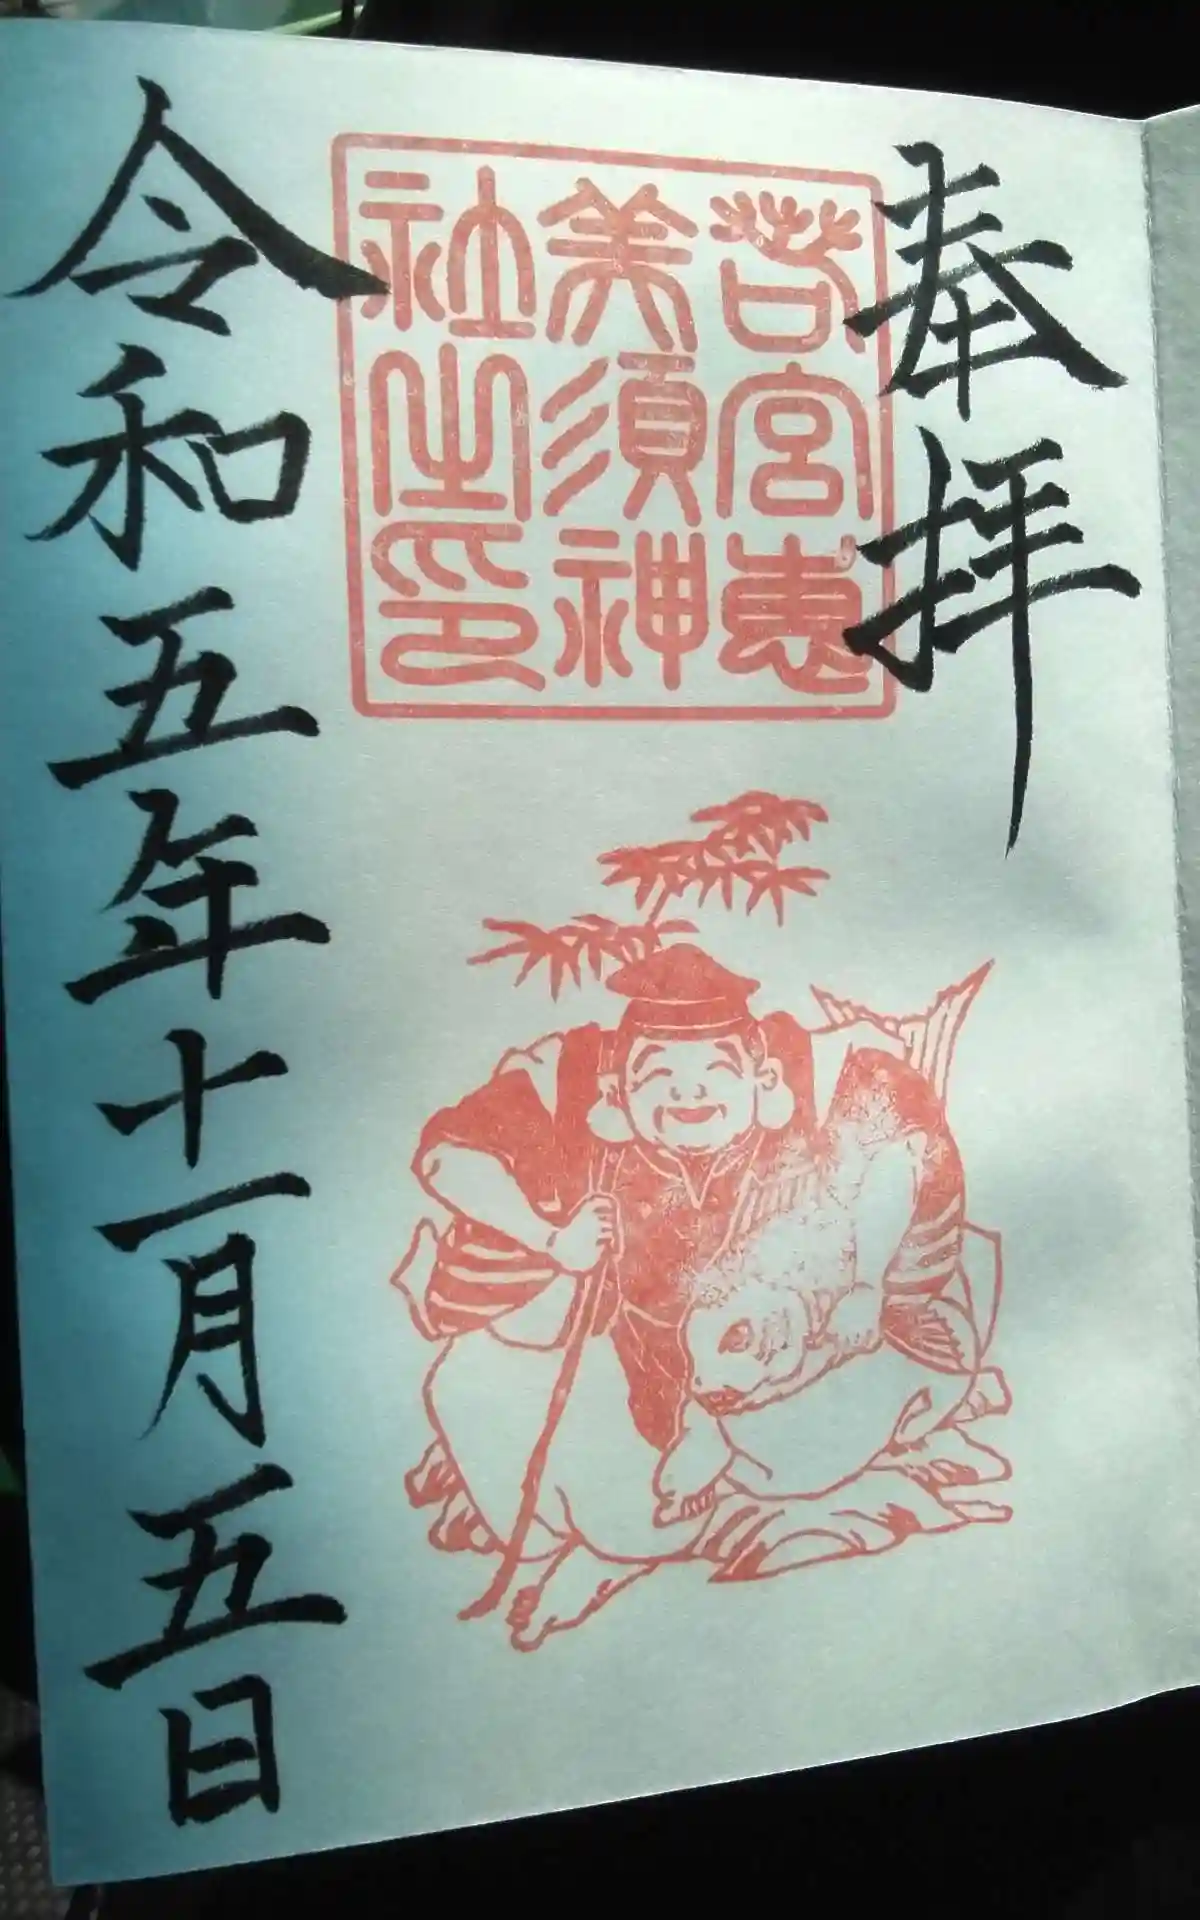 奉拝
若宮恵
美須神
社之印
令和五年十一月五日